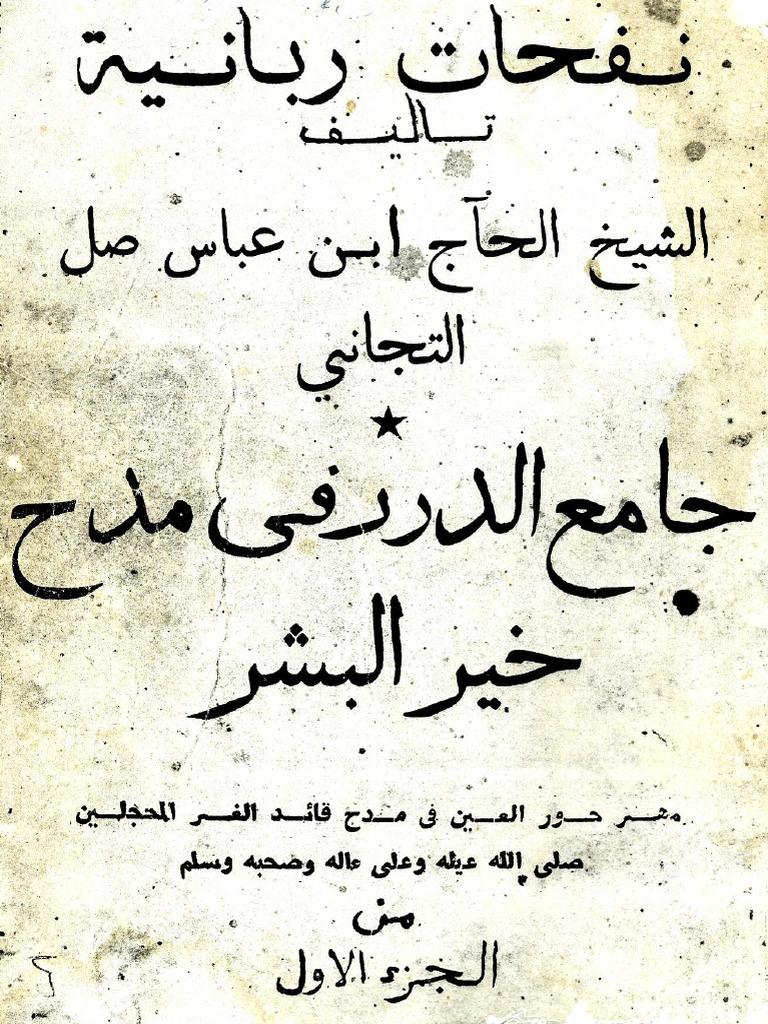 نفحات ربانية
تاليف
الشيخ الحآج ابن عباس صل
التجاني
★
جامع الدرر فى مدح
خير البشر
مهر حور العين فى مدح قائد الغر المحجلين
صلى الله عيله وعلى ءاله وصحبه وسلم
من
الجزء الاول